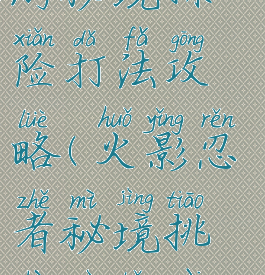 xiǎn dǎ fǎ gōng
险打法攻
lüè huǒ yǐng rěn
略(火影忍
zhě mì jìng tiāo
者秘境挑